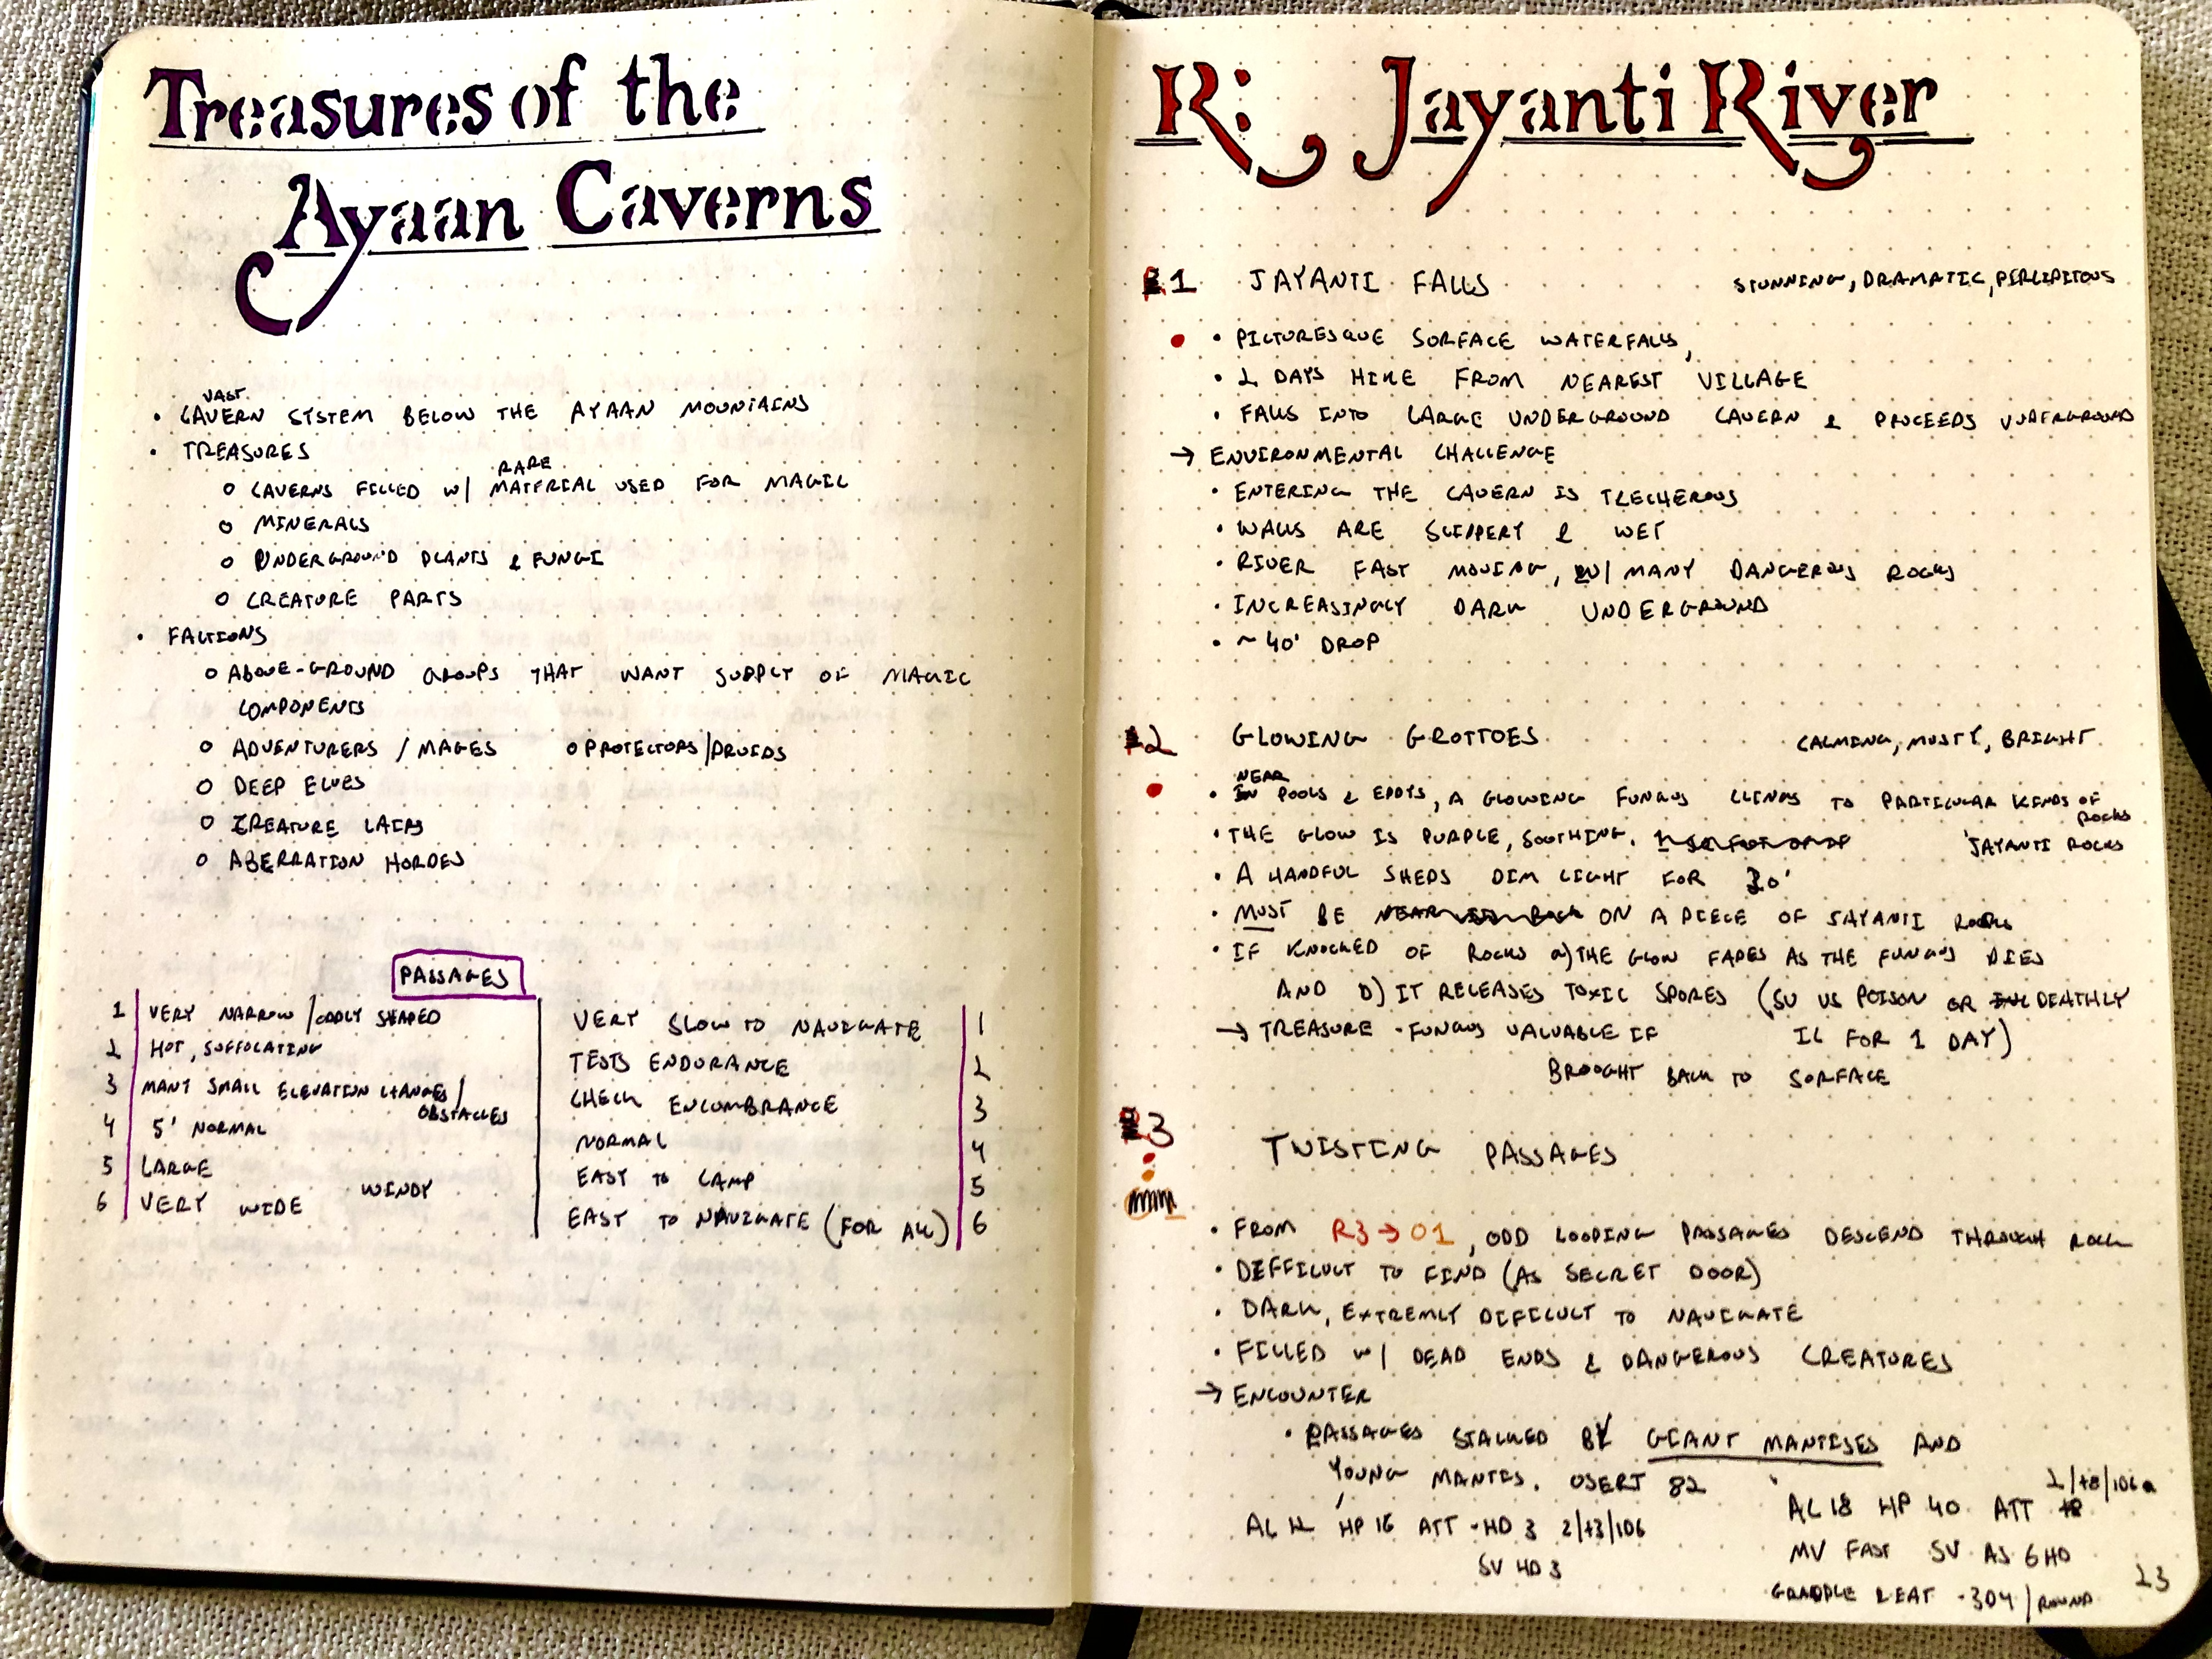 Treasures of the
Ayaan Caverns
VAST
• CAVERN SYSTEM BELOW THE AYAAN MOUNTAINS
• TREASURES
RARE
o CAVERNS FILLED W/ MATERIAL USED FOR MAGIC
o MINERALS
o UNDERGROUND PLANTS & FUNGI
o CREATURE PARTS
• FACTIONS
o ABOVE-GROUND GROUPS THAT WANT SUPPLY OF MAGIC
COMPONENTS
o ADVENTURERS / MAGES o PROTECTORS/DRUIDS
o DEEP ELVES
o CREATURE LAIRS
o ABERRATION HORDES
PASSAGES
1 VERY NARROW / ODDLY SHAPED VERY SLOW TO NAVIGATE 1
2 HOT, SUFFOCATING TESTS ENDURANCE 2
3 MANY SMALL ELEVATION CHANGES / OBSTACLES CHECK ENCUMBRANCE 3
4 5' NORMAL NORMAL 4
5 LARGE WINDY EASY TO CAMP 5
6 VERY WIDE EASY TO NAVIGATE (FOR ALL) 6
R: Jayanti River
R1 JAYANTI FALLS STUNNING, DRAMATIC, PERCIPITOUS
• PICTURESQUE SURFACE WATERFALLS,
• 2 DAYS HIKE FROM NEAREST VILLAGE
• FALLS INTO LARGE UNDERGROUND CAVERN & PROCEEDS UNDERGROUND
→ ENVIRONMENTAL CHALLENGE
• ENTERING THE CAVERN IS TRECHEROUS
• WALLS ARE SLIPPERY & WET
• RIVER FAST MOVING, W/ MANY DANGEROUS ROCKS
• INCREASINGLY DARK UNDERGROUND
• ~ 40' DROP
R2 GLOWING GROTTOES CALMING, MUSTY, BRIGHT
NEAR
• IN POOLS & EDDYS, A GLOWING FUNGUS CLINGS TO PARTICULAR KINDS OF
ROCKS
• THE GLOW IS PURPLE, SOOTHING. JAYANTI ROCKS
• A HANDFUL SHEDS DIM LIGHT FOR 30'
• MUST BE ON A PIECE OF JAYANTI ROCK
• IF KNOCKED OF ROCKS a) THE GLOW FADES AS THE FUNGUS DIES
AND b) IT RELEASES TOXIC SPORES (SV VS POISON OR DEATHLY
→ TREASURE - FUNGUS VALUABLE IF ILL FOR 1 DAY)
BROUGHT BACK TO SURFACE
R3
TWISTING PASSAGES
• FROM R3 → O1, ODD LOOPING PASSAGES DESCEND THROUGH ROCK
• DIFFICULT TO FIND (AS SECRET DOOR)
• DARK, EXTREMLY DIFICULT TO NAVIGATE
• FILLED W/ DEAD ENDS & DANGEROUS CREATURES
→ ENCOUNTER
• PASSAGES STALKED BY GIANT MANTISES AND
YOUNG MANTIS. OSERT 82
AC 18 HP 40 ATT 2/+8/1D6
AC 12 HP 16 ATT - HD 3 2/+3/1D6
MV FAST SV AS 6HD
SV HD 3
GRAPPLE & EAT - 3D4 / ROUND
23